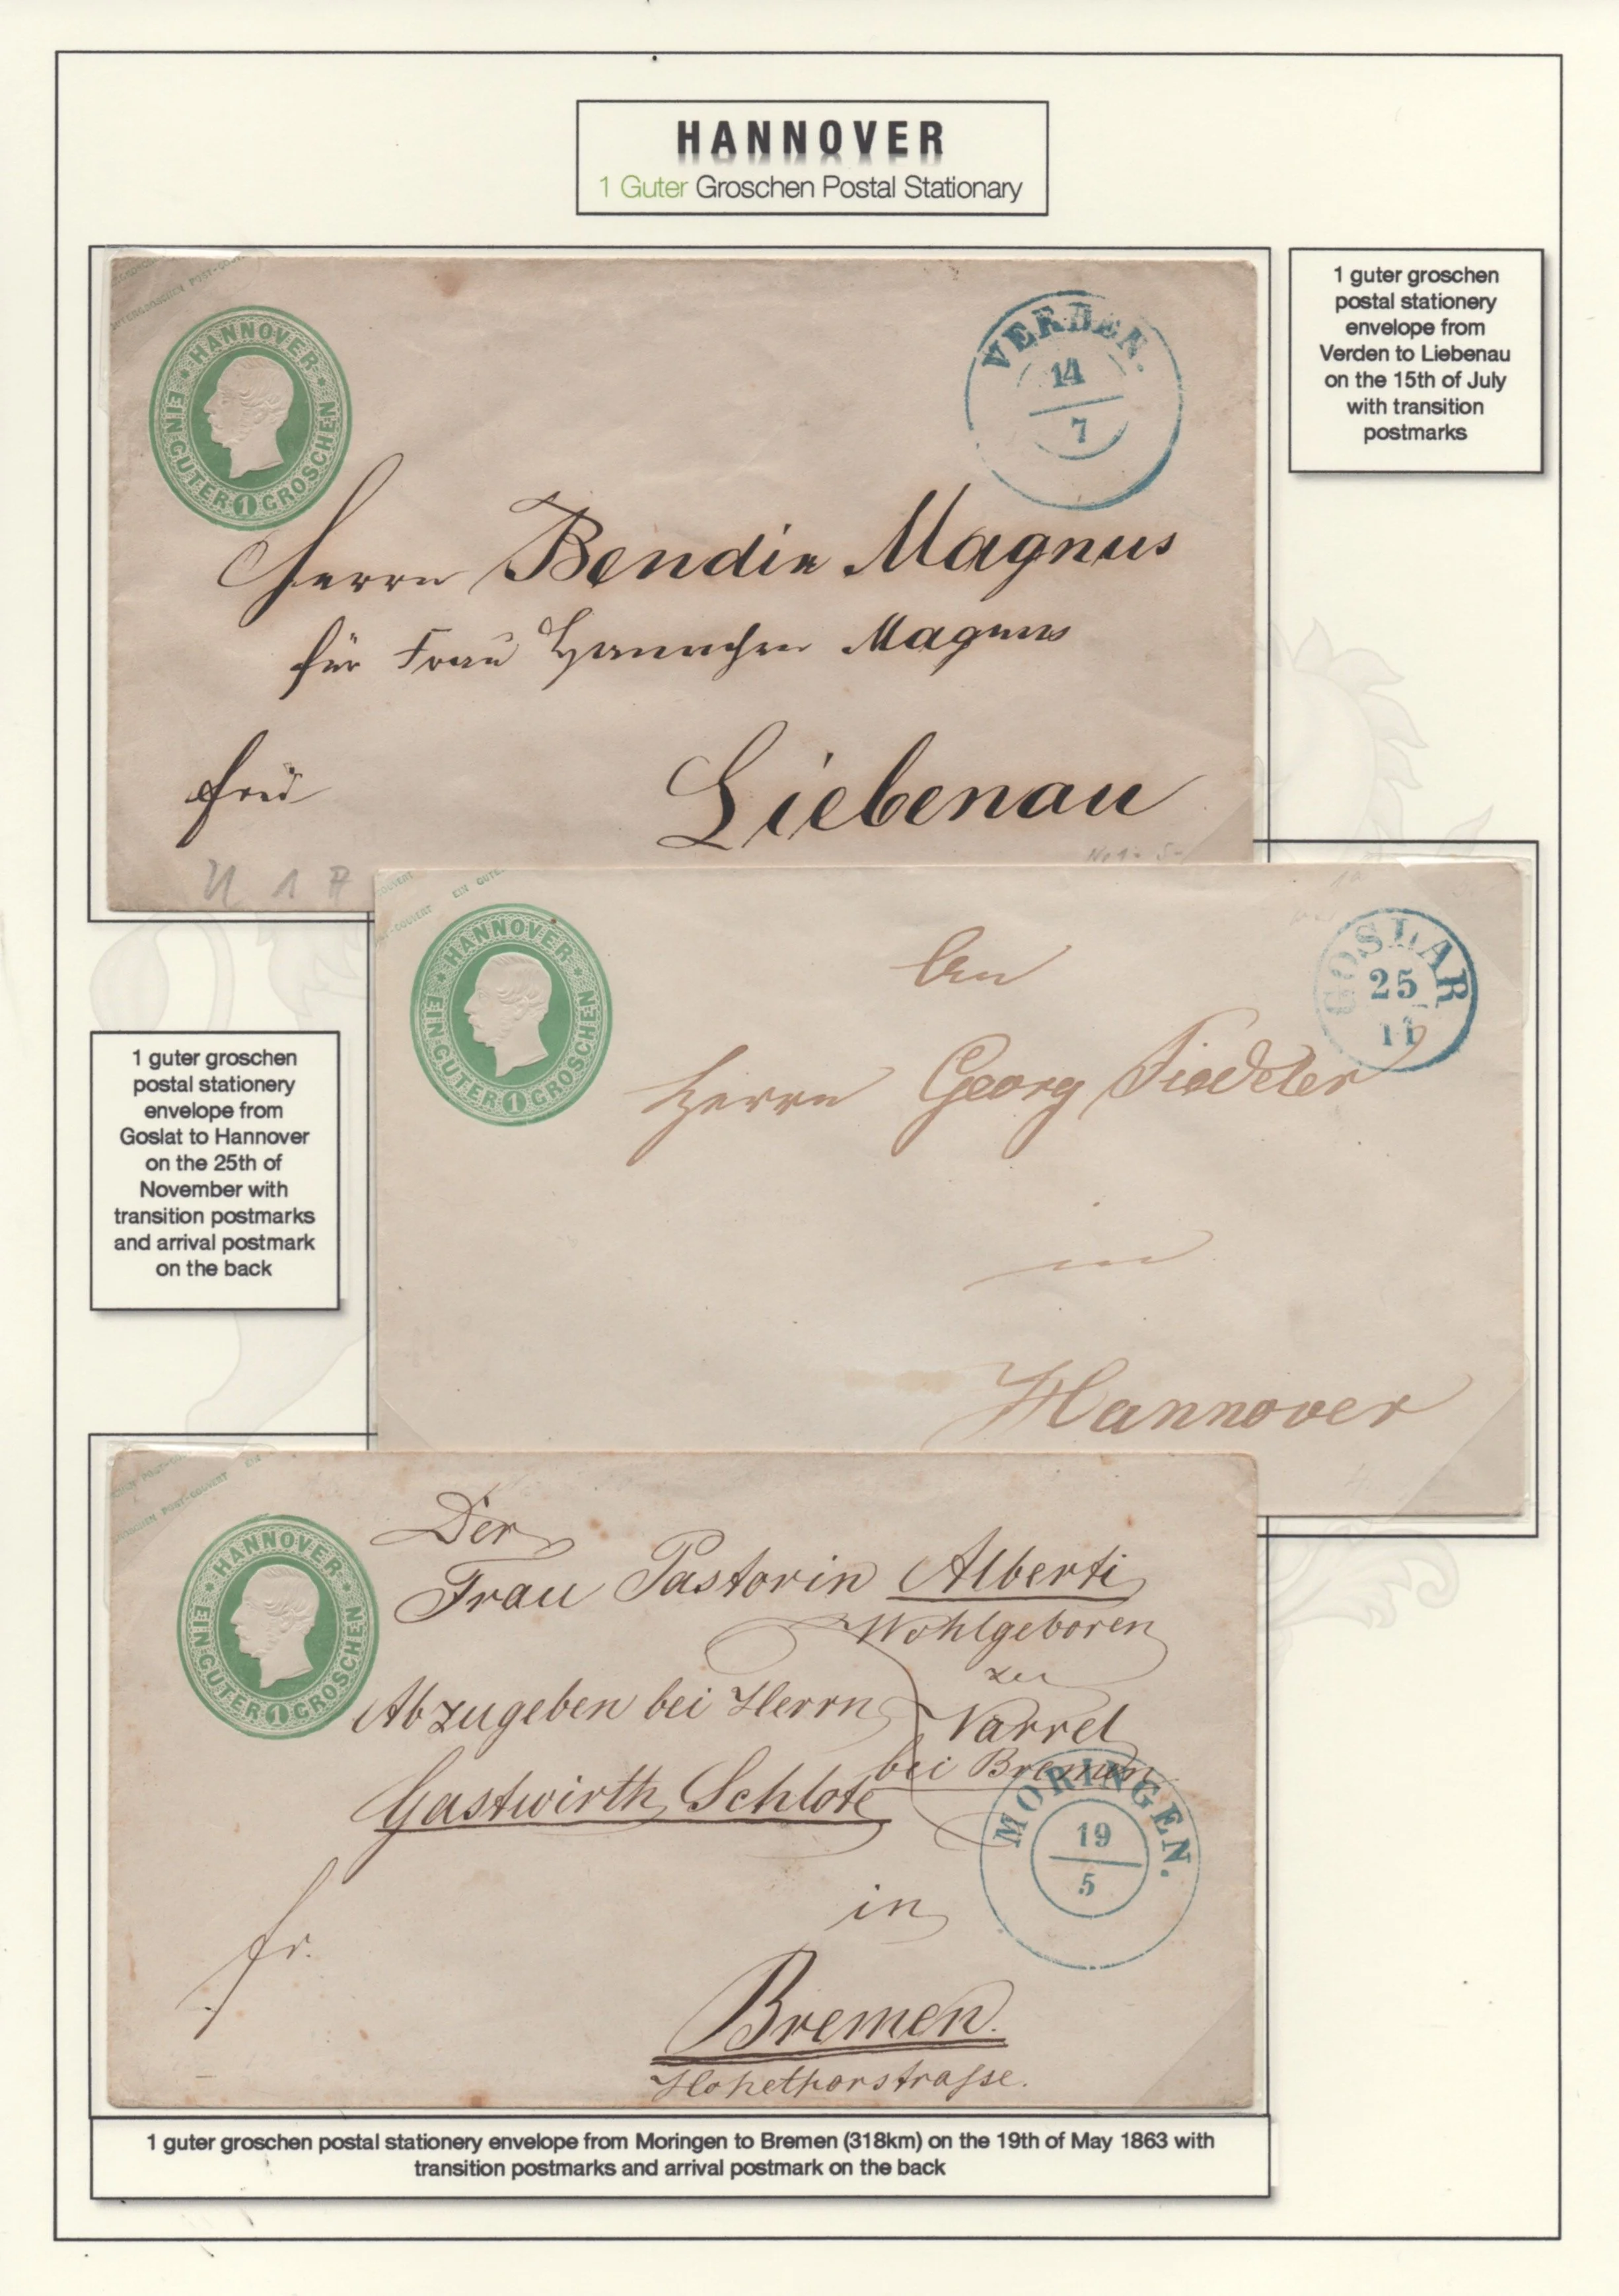 HANNOVER
1 Guter Groschen Postal Stationary
HANNOVER
EIN GUTER 1 GROSCHEN
VERDEN.
14
7
Herrn Bendix Magnus
für Frau Hannchen Magnus
frei
Liebenau
1 guter groschen
postal stationery
envelope from
Verden to Liebenau
on the 15th of July
with transition
postmarks
U 1 A
POST-COUVERT EIN GUTE
HANNOVER
EIN GUTER 1 GROSCHEN
GOSLAR
25
11
An
Herrn Georg Fiedeler
in
Hannover
1 guter groschen
postal stationery
envelope from
Goslat to Hannover
on the 25th of
November with
transition postmarks
and arrival postmark
on the back
POST-COUVERT
HANNOVER
EIN GUTER 1 GROSCHEN
Der
Frau Pastorin Alberti
Wohlgeboren
zu
Varrel
bei Bremen
Abzugeben bei Herrn
Gastwirth Schlote
MORINGEN.
19
5
in
fr.
Bremen.
Hohethorstrasse.
1 guter groschen postal stationery envelope from Moringen to Bremen (318km) on the 19th of May 1863 with
transition postmarks and arrival postmark on the back